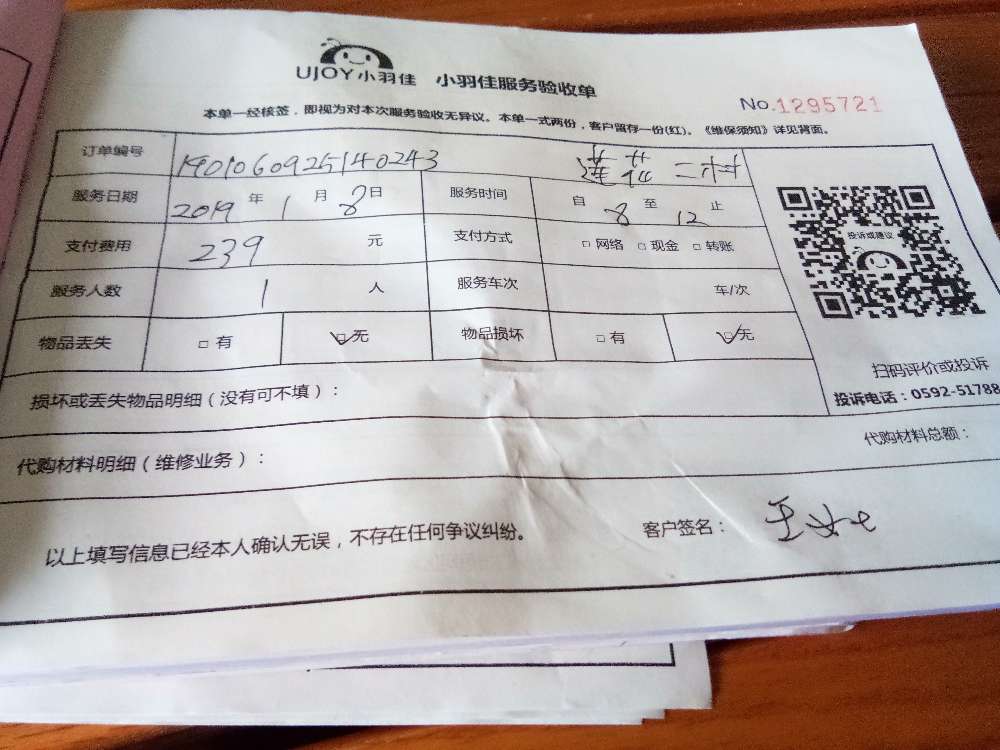 UJOY小羽佳 小羽佳服务验收单
No.1295721
本单一经核签，即视为对本次服务验收无异议。本单一式两份，客户留存一份(红)。《维保须知》详见背面。
订单编号 1901060925140243 莲花二村
服务日期 2019年1月8日 服务时间 自8至12止
支付费用 239元 支付方式 □网络 □现金 □转账
服务人数 1人 服务车次 车/次
物品丢失 □有 ☑无 物品损坏 □有 ☑无
投诉或建议
扫码评价或投诉
投诉电话：0592-51788
损坏或丢失物品明细（没有可不填）：
代购材料明细（维修业务）： 代购材料总额：
以上填写信息已经本人确认无误，不存在任何争议纠纷。 客户签名：